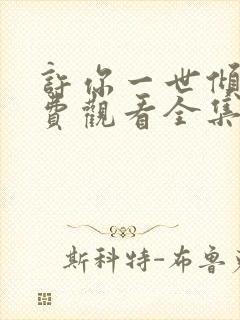 許你一世傾
費觀看全集
斯科特-布魯